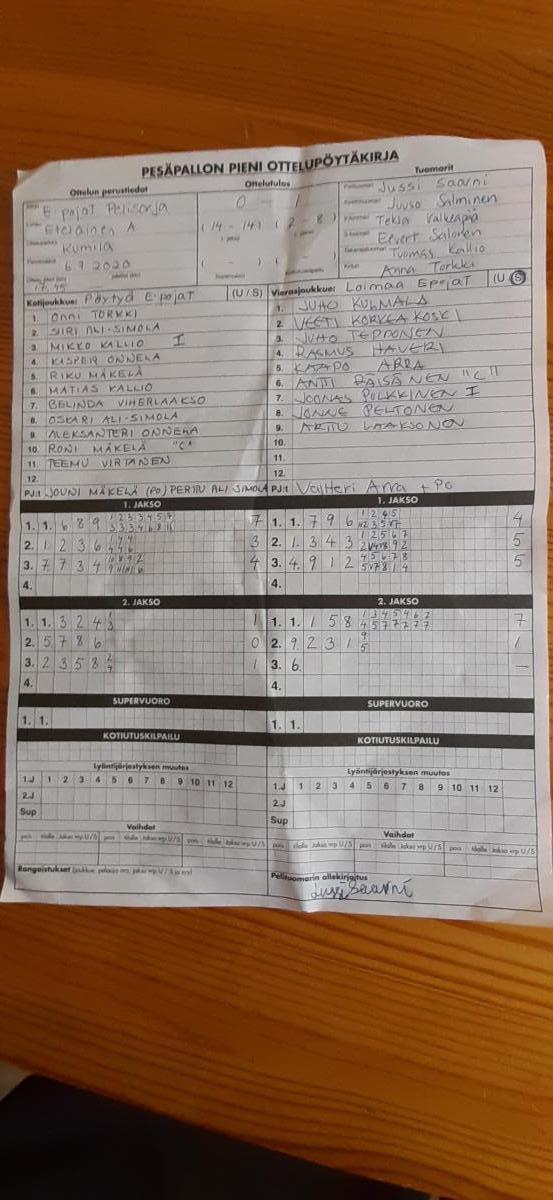 PESÄPALLON PIENI OTTELUPÖYTÄKIRJA
Ottelun perustiedot Ottelutulos Tuomarit
E-pojat Pelisarja 0 - 1 Jussi Saarni
Eteläinen A (14 - 14) (2 - 8) Juuso Salminen
Kumila Tekla Valkeapää
6.7.2020 ( - ) ( - ) Eevert Salonen
17.45 Tuomas Kallio
Anna Torkki
Kotijoukkue: Pöytyä E-pojat (U / S) Vierasjoukkue: Loimaa Epojat (U / S)
1. ONNI TORKKI 1. JUHO KULMALA
2. SIIRI ALI-SIMOLA 2. VEETI KORKEAKOSKI
3. MIKKO KALLIO I 3. JUHO TEPPONEN
4. KASPER ONNELA 4. RASMUS HAVERI
5. RIKU MÄKELÄ 5. KAAPO ARRA
6. MATIAS KALLIO 6. ANTTI RÄISÄNEN "C"
7. BELINDA VIHERLAAKSO 7. JOONAS PULKKINEN I
8. OSKARI ALI-SIMOLA 8. JONNE PELTONEN
9. ALEKSANTERI ONNELA 9. ARTTU LAAKSONEN
10. RONI MÄKELÄ "C" 10.
11. TEEMU VIRTANEN 11.
12. 12.
PJ:t JOUNI MÄKELÄ (PO) PERTTU ALI SIMOLA PJ:t Valtteri Arva + Po
1. JAKSO 1. JAKSO
1. 1. 6 8 9 7 1. 1. 7 9 6 4
2. 1 2 3 6 3 2. 1. 3 4 3 5
3. 7 7 3 4 4 3. 4. 9 1 2 5
4. 4.
2. JAKSO 2. JAKSO
1. 1. 3 2 4 1 1. 1. 1 5 8 7
2. 5 7 8 6 0 2. 9 2 3 1 1
3. 2 3 5 8 1 3. 6. —
4. 4.
SUPERVUORO SUPERVUORO
1. 1. 1. 1.
KOTIUTUSKILPAILU KOTIUTUSKILPAILU
Lyöntijärjestyksen muutos Lyöntijärjestyksen muutos
1.J 1 2 3 4 5 6 7 8 9 10 11 12 1.J 1 2 3 4 5 6 7 8 9 10 11 12
2.J 2.J
Sup Sup
Vaihdot Vaihdot
pois tilalle Jakso vrp U / S pois tilalle Jakso vrp U / S pois tilalle Jakso vrp U / S pois tilalle Jakso vrp U / S
Rangaistukset (joukkue, pelaaja nro, jakso vrp U / S ja syy) Pelituomarin allekirjoitus
Jussi Saarni